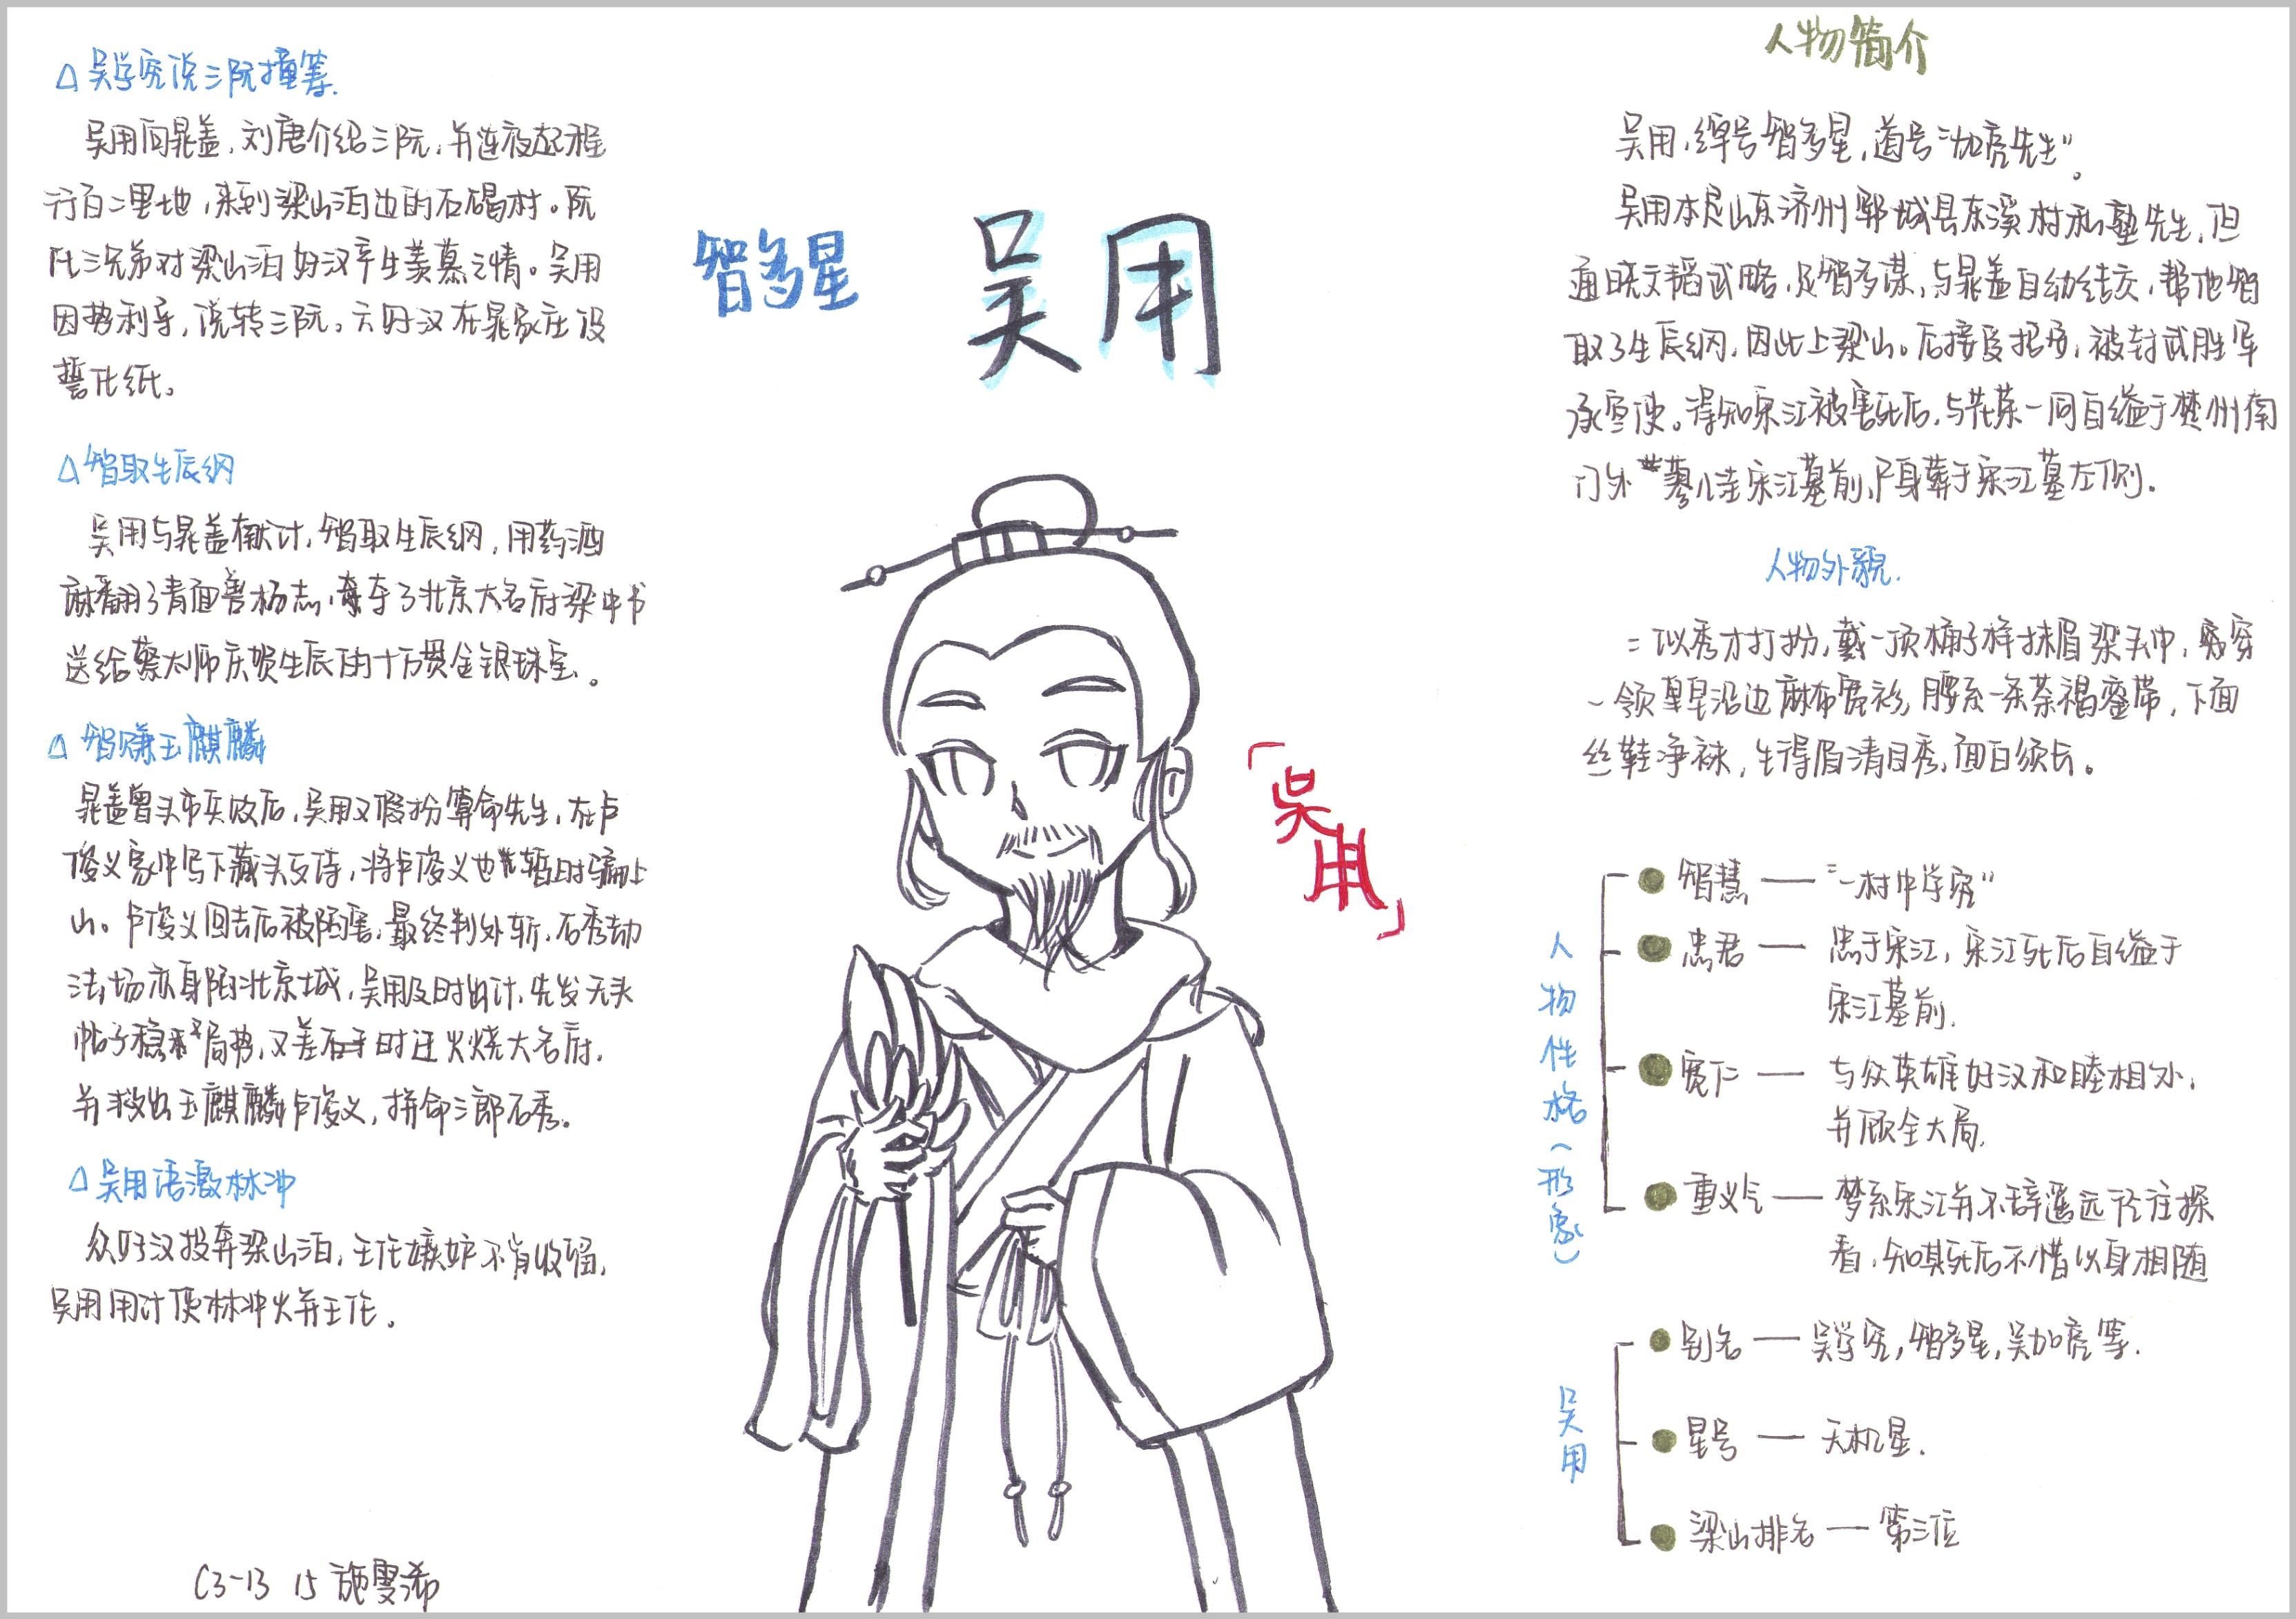 △ 吴学究说三阮撞筹.
吴用向晁盖,刘唐介绍三阮,并连夜起程
行百二里地,来到梁山泊边的石碣村。阮
氏三兄弟对梁山泊好汉产生羡慕之情。吴用
因势利导,说转三阮。六好汉在晁家庄设
誓化纸。
△ 智取生辰纲
吴用与晁盖献计,智取生辰纲,用药酒
麻翻了青面兽杨志,夺了北京大名府梁中书
送给蔡太师庆贺生辰的十万贯金银珠宝。
△ 智赚玉麒麟
晁盖曾头市失败后,吴用又假扮算命先生,在卢
俊义家中写下藏头反诗,将卢俊义也暂时骗上
山。卢俊义回去后被陷害,最终判处斩,石秀劫
法场亦身陷北京城,吴用及时出计,先发无头
帖子稳局势,又差时迁火烧大名府,
并救出玉麒麟卢俊义,拼命三郎石秀。
△ 吴用语激林冲
众好汉投奔梁山泊,王伦嫉妒不肯收留,
吴用用计使林冲火并王伦。
C3-13 15 施雯希
智多星 吴用
「吴用」
人物简介
吴用,绰号智多星,道号“加亮先生”。
吴用本是山东济州郓城县东溪村私塾先生,但
通晓文韬武略,足智多谋,与晁盖自幼结交,帮他智
取了生辰纲,因此上梁山。后接受招安,被封武胜军
承宣使。得知宋江被害死后,与花荣一同自缢于楚州南
门外蓼儿洼宋江墓前,尸身葬于宋江墓左侧.
人物外貌.
=似秀才打扮,戴一顶桶子样抹眉梁头巾,穿
一领皂沿边麻布宽衫,腰系一条茶褐銮带,下面
丝鞋净袜,生得眉清目秀,面白须长。
人物性格(形象)
智慧 — “一村中学究”
忠君 — 忠于宋江,宋江死后自缢于
宋江墓前.
宽仁 — 与众英雄好汉和睦相处,
并顾全大局.
重义气 — 梦系宋江并不辞遥远路径往探
看,知其死后不惜以身相随
吴用
别名 — 吴学究,智多星,吴加亮等.
星号 — 天机星.
梁山排名 — 第三位